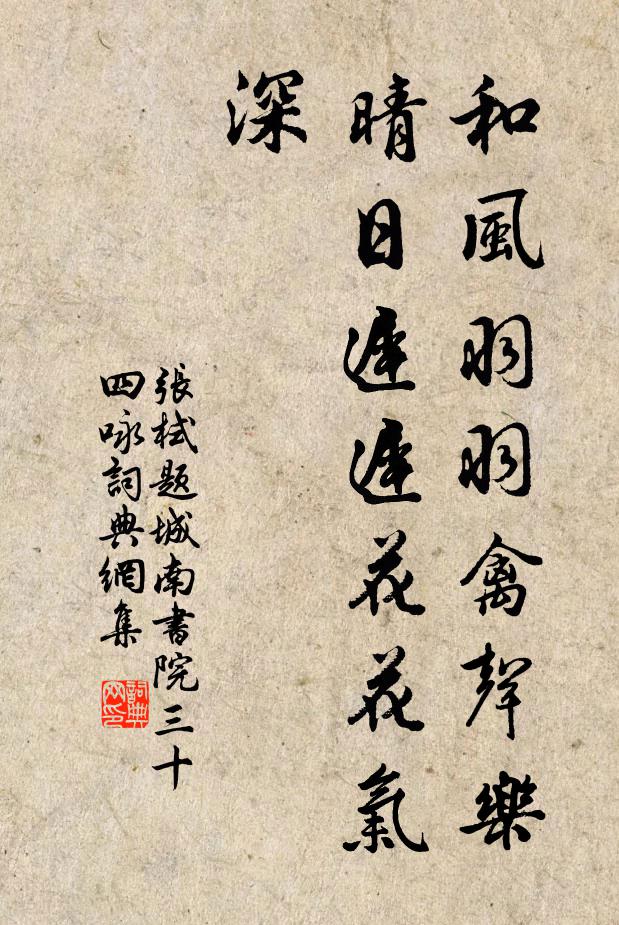 和風羽羽禽聲樂
晴日遲遲花花氣
深
張栻題城南書院三十
四咏詞典網集
詞典网印